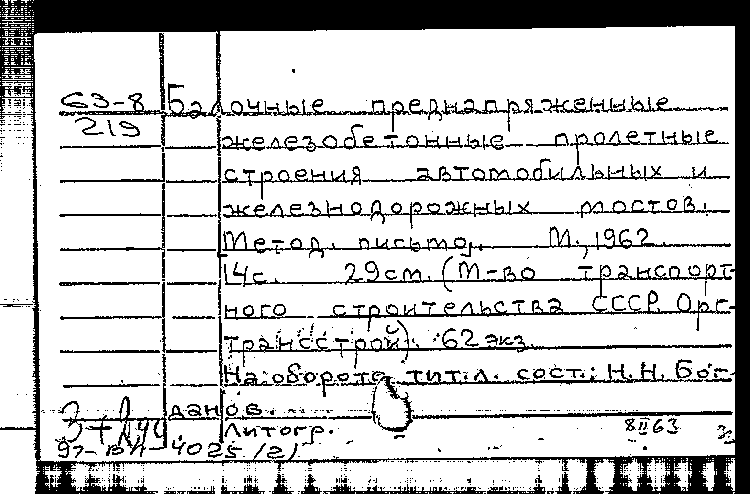 63-8 Балочные преднапряженные
219
железобетонные пролетные
строения автомобильных и
железнодорожных мостов.
Метод. письмо. М., 1962.
14с. 29см. (М-во транспорт-
ного строительства СССР. Орг-
трансстрой). 62 экз.
На обороте тит. л. сост.: Н.Н. Бог-
данов.
Литогр.
8 II 63
4025/2)